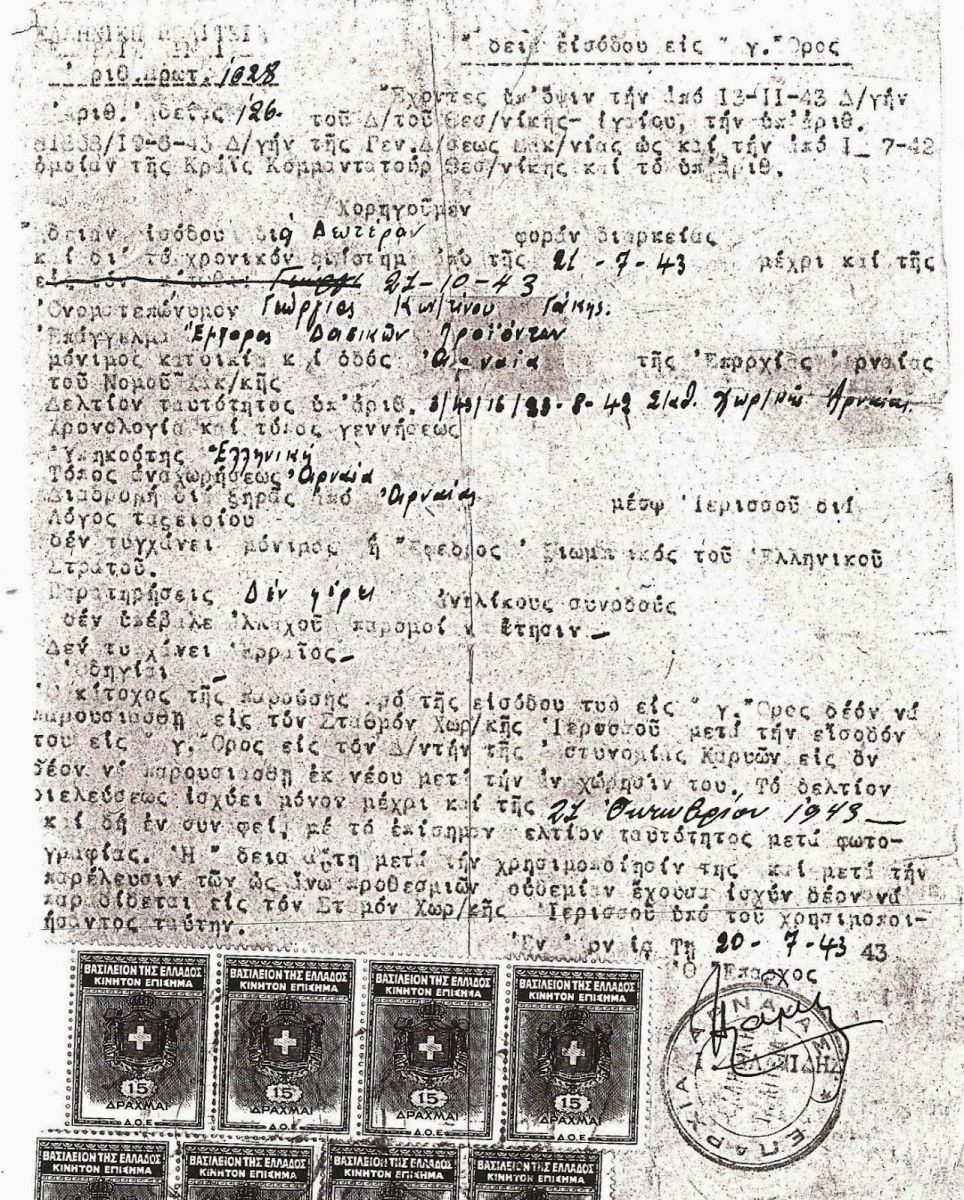 ΕΛΛΗΝΙΚΗ ΠΟΛΙΤΕΙ
δεια εἰσόδου εἰς " γ.῎Ορος
ριθ.πρωτ. 1028
Ἔχοντες ὑπ'ὄψιν τήν ἀπό Ι3-ΙΙ-43 Δ/γήν
ἀριθ. ἀδείας 126. τοῦ Δ/τοῦ Θεσ/νίκης- ἰγαίου, τήν ὑπ'ἀριθ.
Δ/γήν τῆς Γεν.Δ/σεως Μακ/νίας ὡς καί τήν ἀπό Ι_ 7-42
ὁμοίαν τῆς Κράϊς Κομμαντατούρ Θεσ/νίκης καί τό ὑπ'ἀριθ.
Χορηγοῦμεν
ἄδειαν ἰσόδου διά Δωτέραν φοράν διαρκείας
καί δι' τό χρονικόν ἀπό τῆς 21 - 7 - 43 μέχρι καί τῆς
27-10-43
Ὀνοματεπώνυμον Γεώργιος Κων/τίνου Γάκης.
Ἐπάγγελμα Ἔμπορος Δασικῶν Προϊόντων
μόνιμος κατοικία καί ὁδός Ἀρναία τῆς Ἐπαρχίας ρναίας
τοῦ Νομοῦ Χαλ/κῆς
Δελτίον ταυτότητος ὑπ'ἀριθ. 8-43 Σ/αθ. Χωρ/κῆς Ἀρναίας.
Χρονολογία καί τόπος γεννήσεως
Ὑπηκοότης Ἑλληνική
Τόπος ἀναχωρήσεως Ἀρναία
Διαδρομή διά ξηρᾶς ἀπό Ἀρναίας μέσῳ Ἱερισσοῦ διά
Λόγος ταξειδίου
δέν τυγχάνει μόνιμος ἤ Ἔφεδρος ξιωματικός τοῦ Ἑλληνικοῦ
Στρατοῦ.
Παρατηρήσεις Δέν φέρει ἀνηλίκους συνοδούς
δέν ὑπέβαλε ἀλλαχοῦ παρομοίαν ἔτησιν_
Δέν τυγχάνει Ἑβραῖος_
Ὁδηγίαι
Ὁ κάτοχος τῆς παρούσης πρό τῆς εἰσόδου του εἰς " γ.῎Ορος δέον νά
παρουσιάσθη εἰς τόν Σταθμόν Χωρ/κῆς Ἱερισσοῦ μετά τήν εἴσοδόν
του εἰς " γ.῎Ορος εἰς τόν Δ/ντήν τῆς στυνομίας Καρυῶν εἰς ὅν
δέον νά παρουσιασθῇ ἐκ νέου μετά τήν ἀναχώρησίν του. Τό δελτίον
διελεύσεως ἰσχύει μόνον μέχρι καί τῆς 27 Ὀκτωβρίου 1943_
καί δή ἐν συναφείᾳ μέ τό ἐπίσημον δελτίον ταυτότητος μετά φωτο-
γραφίας. Ἡ " δεια αὕτη μετά τήν χρησιμοποίησίν της καί μετά τήν
παρέλευσιν τῶν ὡς ἄνω προθεσμιῶν οὐδεμίαν ἔχουσα ἰσχύν δέον νά
παραδίδεται εἰς τόν Σταθμόν Χωρ/κῆς Ἱερισσοῦ ὑπό τοῦ χρησιμοποι-
ήσαντος ταύτην.
Ἐν Ἀρναίᾳ Τῇ 20 - 7 - 43 43
Ὁ Ἔπαρχος
ΒΑΣΙΛΕΙΟΝ ΤΗΣ ΕΛΛΑΔΟΣ ΒΑΣΙΛΕΙΟΝ ΤΗΣ ΕΛΛΑΔΟΣ ΒΑΣΙΛΕΙΟΝ ΤΗΣ ΕΛΛΑΔΟΣ ΒΑΣΙΛΕΙΟΝ ΤΗΣ ΕΛΛΑΔΟΣ
ΚΙΝΗΤΟΝ ΕΠΙΣΗΜΑ ΚΙΝΗΤΟΝ ΕΠΙΣΗΜΑ ΚΙΝΗΤΟΝ ΕΠΙΣΗΜΑ ΚΙΝΗΤΟΝ ΕΠΙΣΗΜΑ
15 15 15 15
ΔΡΑΧΜΑΙ ΔΡΑΧΜΑΙ ΔΡΑΧΜΑΙ ΔΡΑΧΜΑΙ
Δ.Ο.Ε. Δ.Ο.Ε. Δ.Ο.Ε. Δ.Ο.Ε.
ΕΠΑΡΧΙΑ
ΒΑΣΙΛΕΙΟΝ ΤΗΣ ΕΛΛΑΔΟΣ ΒΑΣΙΛΕΙΟΝ ΤΗΣ ΕΛΛΑΔΟΣ ΒΑΣΙΛΕΙΟΝ ΤΗΣ ΕΛΛΑΔΟΣ ΒΑΣΙΛΕΙΟΝ ΤΗΣ ΕΛΛΑΔΟΣ
ΚΙΝΗΤΟΝ ΕΠΙΣΗΜΑ ΚΙΝΗΤΟΝ ΕΠΙΣΗΜΑ ΚΙΝΗΤΟΝ ΕΠΙΣΗΜΑ ΚΙΝΗΤΟΝ ΕΠΙΣΗΜΑ